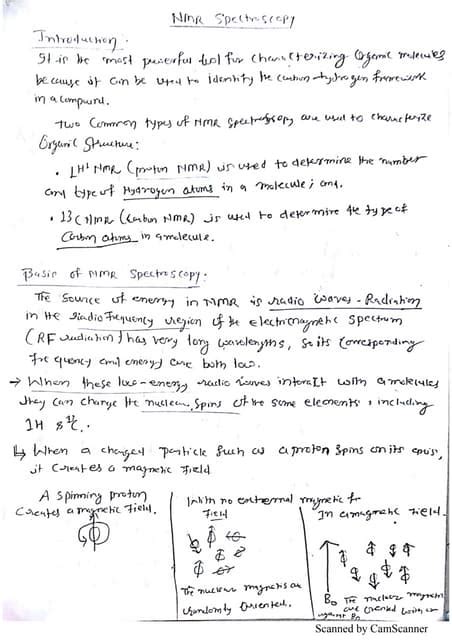 NMR Spectroscopy
Introduction.
It is the most powerful tool for characterizing organic molecules
because it can be used to identify the carbon-hydrogen framework
in a compound.
Two Common types of NMR Spectroscopy are used to characterize
Organic Structure:
• 1H' NMR (proton NMR) is used to determine the number
and type of Hydrogen atoms in a molecule; and,
• 13C NMR (Carbon NMR) is used to determine the type of
Carbon atoms in a molecule.
Basic of NMR Spectroscopy:
The Source of energy in NMR is radio waves - Radiation
in the radio frequency region of the electromagnetic spectrum
(RF radiation) has very long wavelengths, so its corresponding
frequency and energy are both low.
→ When these low-energy radio waves interact with a molecules
they can change the nuclear spins of the some elements, including
1H &
↳ When a charged particle such as a proton spins on its axis,
it creates a magnetic field
A spinning proton
Creates a magnetic field.
With no external magnetic
field
The nuclear magnets are
randomly oriented.
In a magnetic field.
B0 The nuclear magnets
are oriented with or
against B0
Scanned by CamScanner